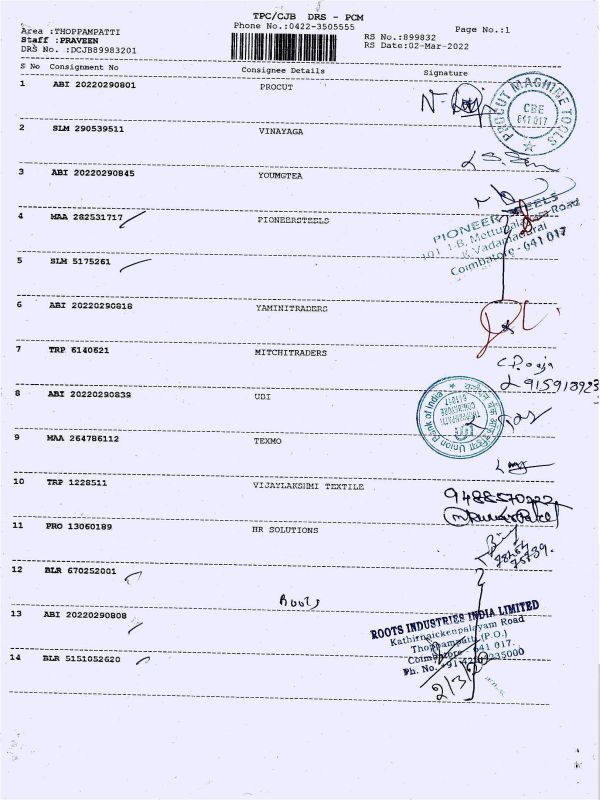 TPC/CJB DRS - PCM
Area :THOPPAMPATTI
Phone No.:0422-3505555
Page No.:1
Staff :PRAVEEN
RS No.:899832
DRS No. :DCJB89983201
RS Date:02-Mar-2022
S No Consignment No Consignee Details Signature
1 ABI 20220290801 PROCUT
PROCUT MACHINE TOOLS
CBE
641 017
2 SLM 290539511 VINAYAGA
3 ABI 20220290845 YOUMGTEA
4 MAA 282531717 PIONEERSTEELS
PIONEER STEELS
101, 1-B, Mettupalayam Road
Vadamadurai
Coimbatore - 641 017
5 SLM 5175261
6 ABI 20220290818 YAMINITRADERS
7 TRP 6140621 MITCHITRADERS
C.Pooja
8 ABI 20220290839 UDI
Union Bank of India
THOPPAMPATTI
COIMBATORE
641017
9 MAA 264786112 TEXMO
10 TRP 1228511 VIJAYLAKSHMI TEXTILE
11 PRO 13060189 HR SOLUTIONS
12 BLR 670252001
Roots
13 ABI 20220290808
ROOTS INDUSTRIES INDIA LIMITED
Kathirnaickenpalayam Road
Thoppampatti (P.O.)
Coimbatore - 641 017.
14 BLR 5151052620
Ph. No.
2/3/22